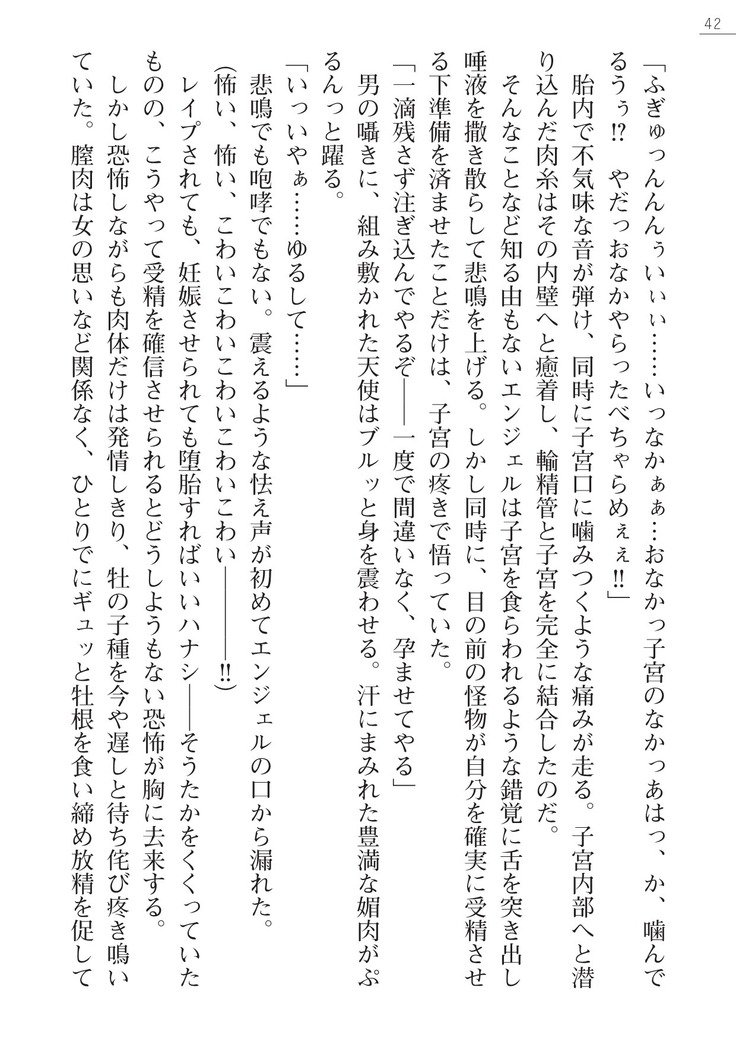 42
「ふぎゅっんんんぅいぃぃ……いっなかぁぁ…おなかっ子宮のなかっあはっ、か、噛んで
るうぅ⁉　やだっおなかやらったべちゃらめぇぇ‼」
胎内で不気味な音が弾け、同時に子宮口に噛みつくような痛みが走る。子宮内部へと潜
り込んだ肉糸はその内壁へと癒着し、輸精管と子宮を完全に結合したのだ。
そんなことなど知る由もないエンジェルは子宮を食らわれるような錯覚に舌を突き出し
唾液を撒き散らして悲鳴を上げる。しかし同時に、目の前の怪物が自分を確実に受精させ
る下準備を済ませたことだけは、子宮の疼きで悟っていた。
「一滴残さず注ぎ込んでやるぞ――一度で間違いなく、孕ませてやる」
男の囁きに、組み敷かれた天使はブルッと身を震わせる。汗にまみれた豊満な媚肉がぷ
るんっと躍る。
「いっいやぁ……ゆるして……」
悲鳴でも咆哮でもない。震えるような怯え声が初めてエンジェルの口から漏れた。
（怖い、怖い、こわいこわいこわいこわいこわい――――‼）
レイプされても、妊娠させられても堕胎すればいいハナシ――そうたかをくくっていた
ものの、こうやって受精を確信させられるとどうしようもない恐怖が胸に去来する。
しかし恐怖しながらも肉体だけは発情しきり、牡の子種を今や遅しと待ち侘び疼き鳴い
ていた。膣肉は女の思いなど関係なく、ひとりでにギュッと牡根を食い締め放精を促して